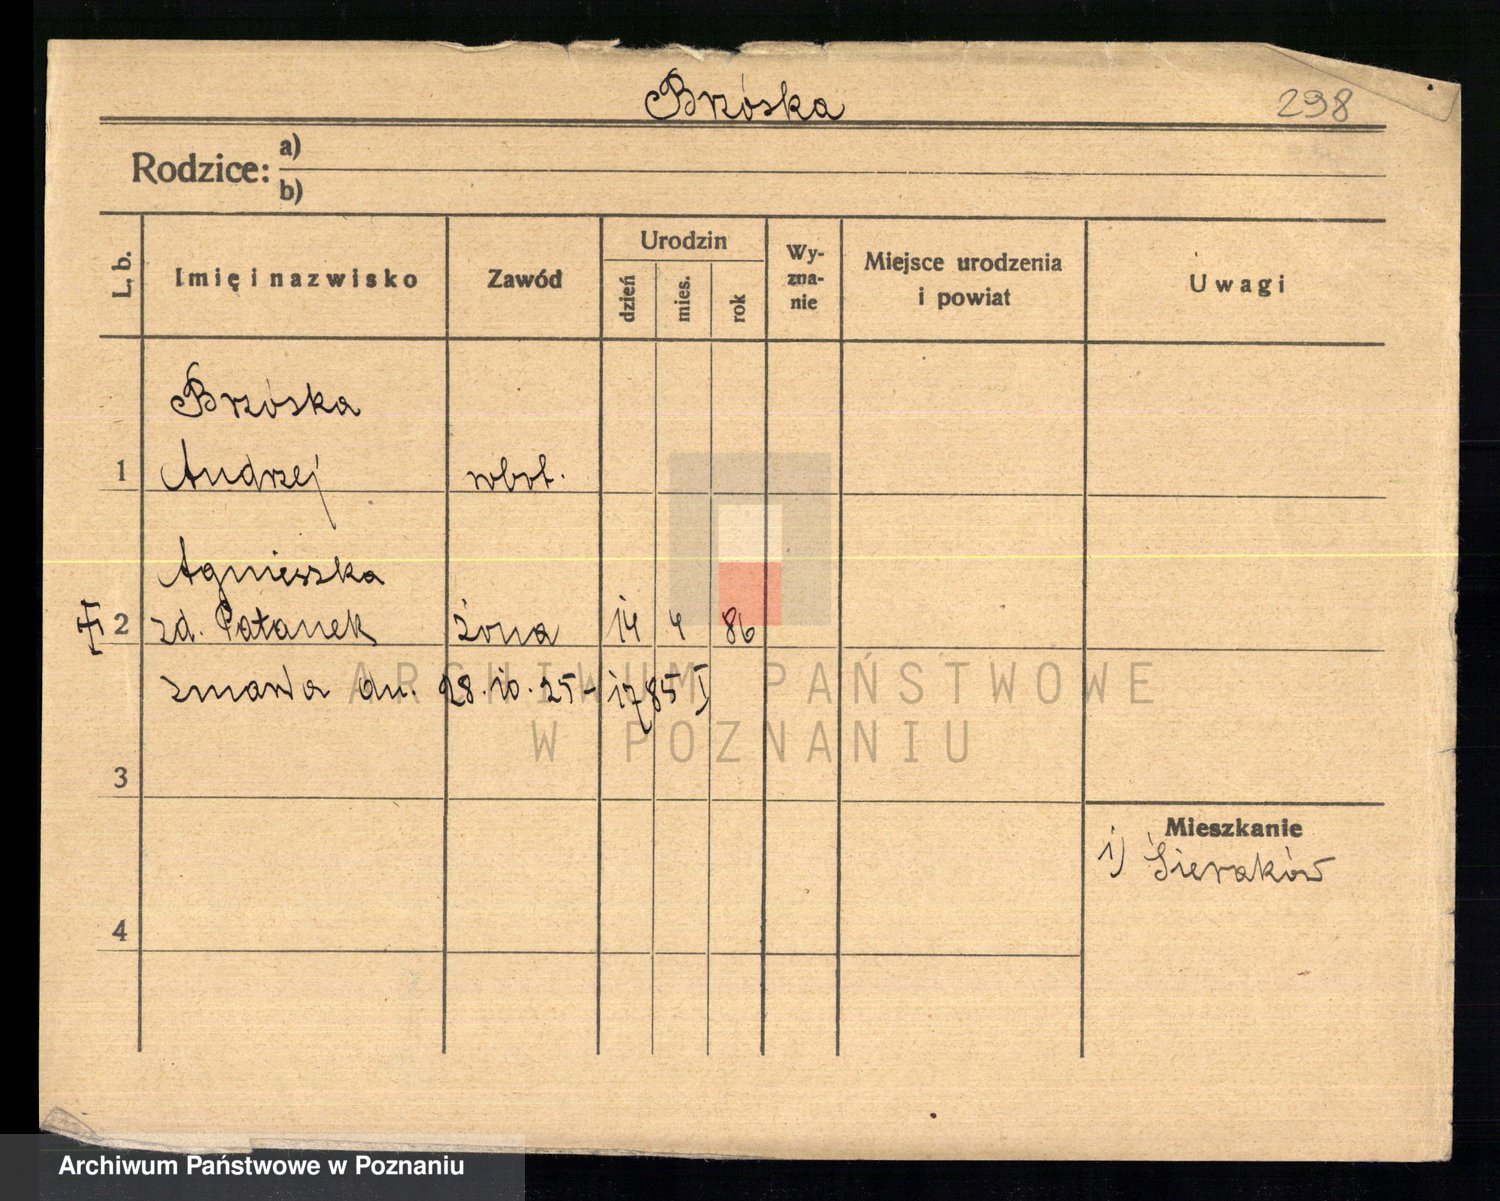 Brzóska 298
Rodzice: a)
b)
L. b.
Imię i nazwisko
Zawód
Urodzin
dzień
mies.
rok
Wy-
zna-
nie
Miejsce urodzenia
i powiat
Uwagi
Brzóska
1 Andrzej robot.
Agnieszka
2 zd. Patanek żona 14 4 86
zmarła dn. 28.10.25 - 1785 I
3
Mieszkanie
1) Sieraków
4
ARCHIWUM PAŃSTWOWE
W POZNANIU
Archiwum Państwowe w Poznaniu